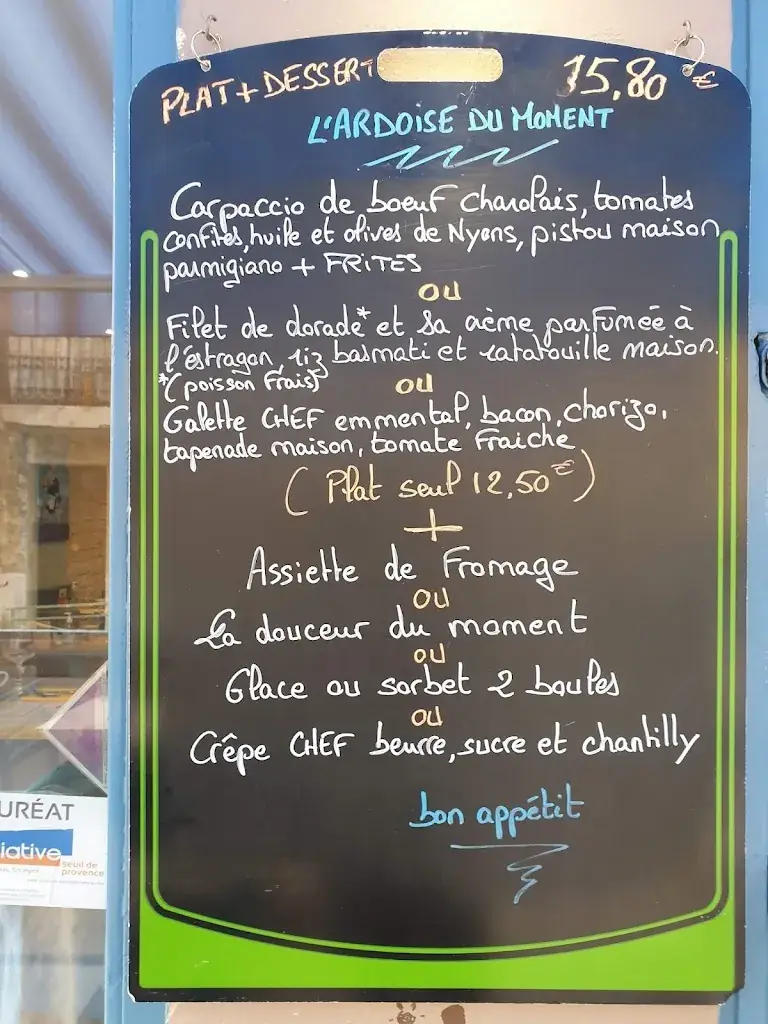 PLAT + DESSERT 15,80 €
L'ARDOISE DU MOMENT
Carpaccio de boeuf charolais, tomates
confites, huile et olives de Nyons, pistou maison
parmigiano + FRITES
OU
Filet de dorade* et sa crème parfumée à
l'estragon, riz basmati et ratatouille maison.
*(poisson frais)
OU
Galette CHEF emmental, bacon, chorizo,
tapenade maison, tomate fraiche
(Plat seul 12,50€)
+
Assiette de fromage
OU
La douceur du moment
OU
Glace ou sorbet 2 boules
OU
Crêpe CHEF beurre, sucre et chantilly
bon appétit
URÉAT
iative
seuil de
provence